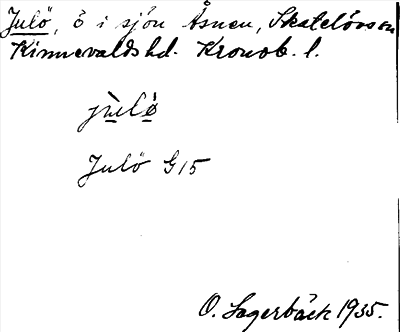 Julö, ö i sjön Åsnen, Skatelövs sn
Kinnevalds hd. Kronob. l.
jùlø̀
Julö G15
O. Lagerbäck 1935.